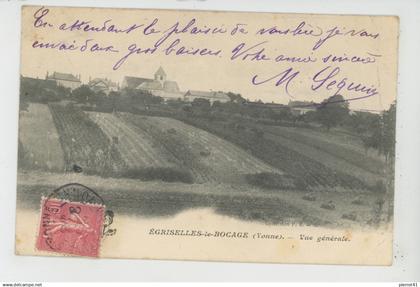 En attendant le plaisir de vous lire je vous
envoie deux gros baisers. Votre amie sincère
M. Seguin
ÉGRISELLES-le-BOCAGE (Yonne). — Vue générale.
pierre41 for www.delcampe.net